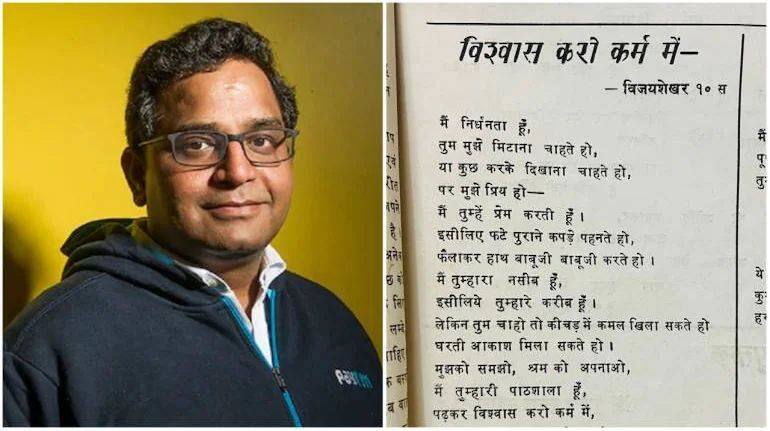 विश्वास करो कर्म में—
— विजयशेखर १० स
मैं निर्धनता हूँ,
तुम मुझे मिटाना चाहते हो,
या कुछ करके दिखाना चाहते हो,
पर मुझे प्रिय हो—
मैं तुम्हें प्रेम करती हूँ ।
इसीलिए फटे पुराने कपड़े पहनते हो,
फैलाकर हाथ बाबूजी बाबूजी करते हो ।
मैं तुम्हारा नसीब हूँ,
इसीलिये तुम्हारे करीब हूँ ।
लेकिन तुम चाहो तो कीचड़ में कमल खिला सकते हो
धरती आकाश मिला सकते हो ।
मुझको समझो, श्रम को अपनाओ,
मैं तुम्हारी पाठशाला हूँ,
पढ़कर विश्वास करो कर्म में,